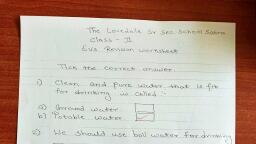 The Lovedale Sr Sec School Sadri
Class - II
EVS Revision worksheet
Tick the correct answer.
1) Clean and pure water that is fit
for drinking is called :-
a) Ground water
b) Potable water
2) We should use boil water for drinking